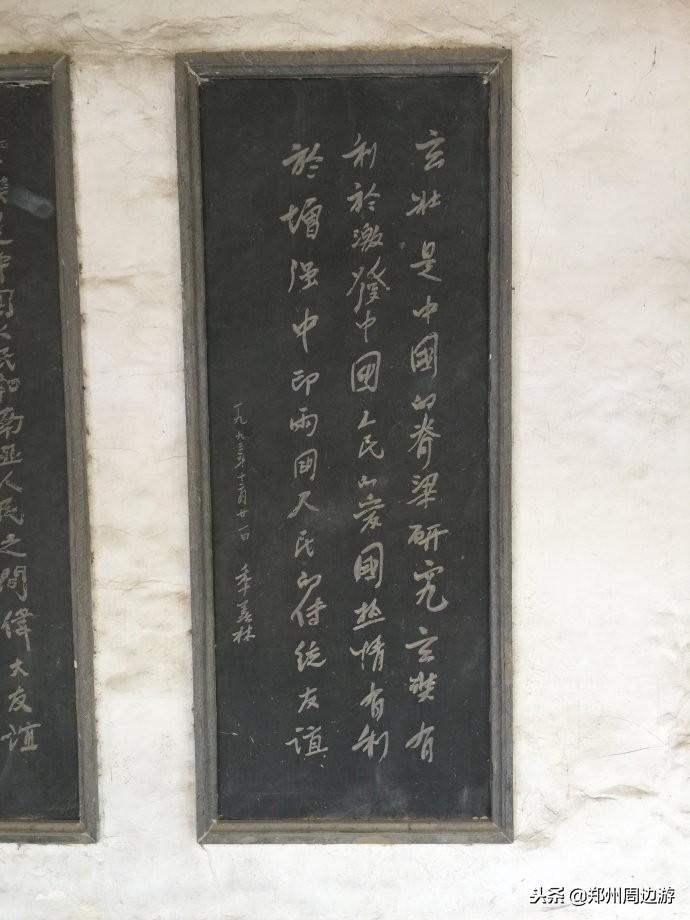 玄奘是中國的脊梁研究玄奘有
利於激發中國人民的爱國热情有利
於增强中印兩国人民的传统友谊
一九九三年十二月廿一日 季羡林
是中国人民和南亚人民之間偉大友谊
头条 @郑州周边游